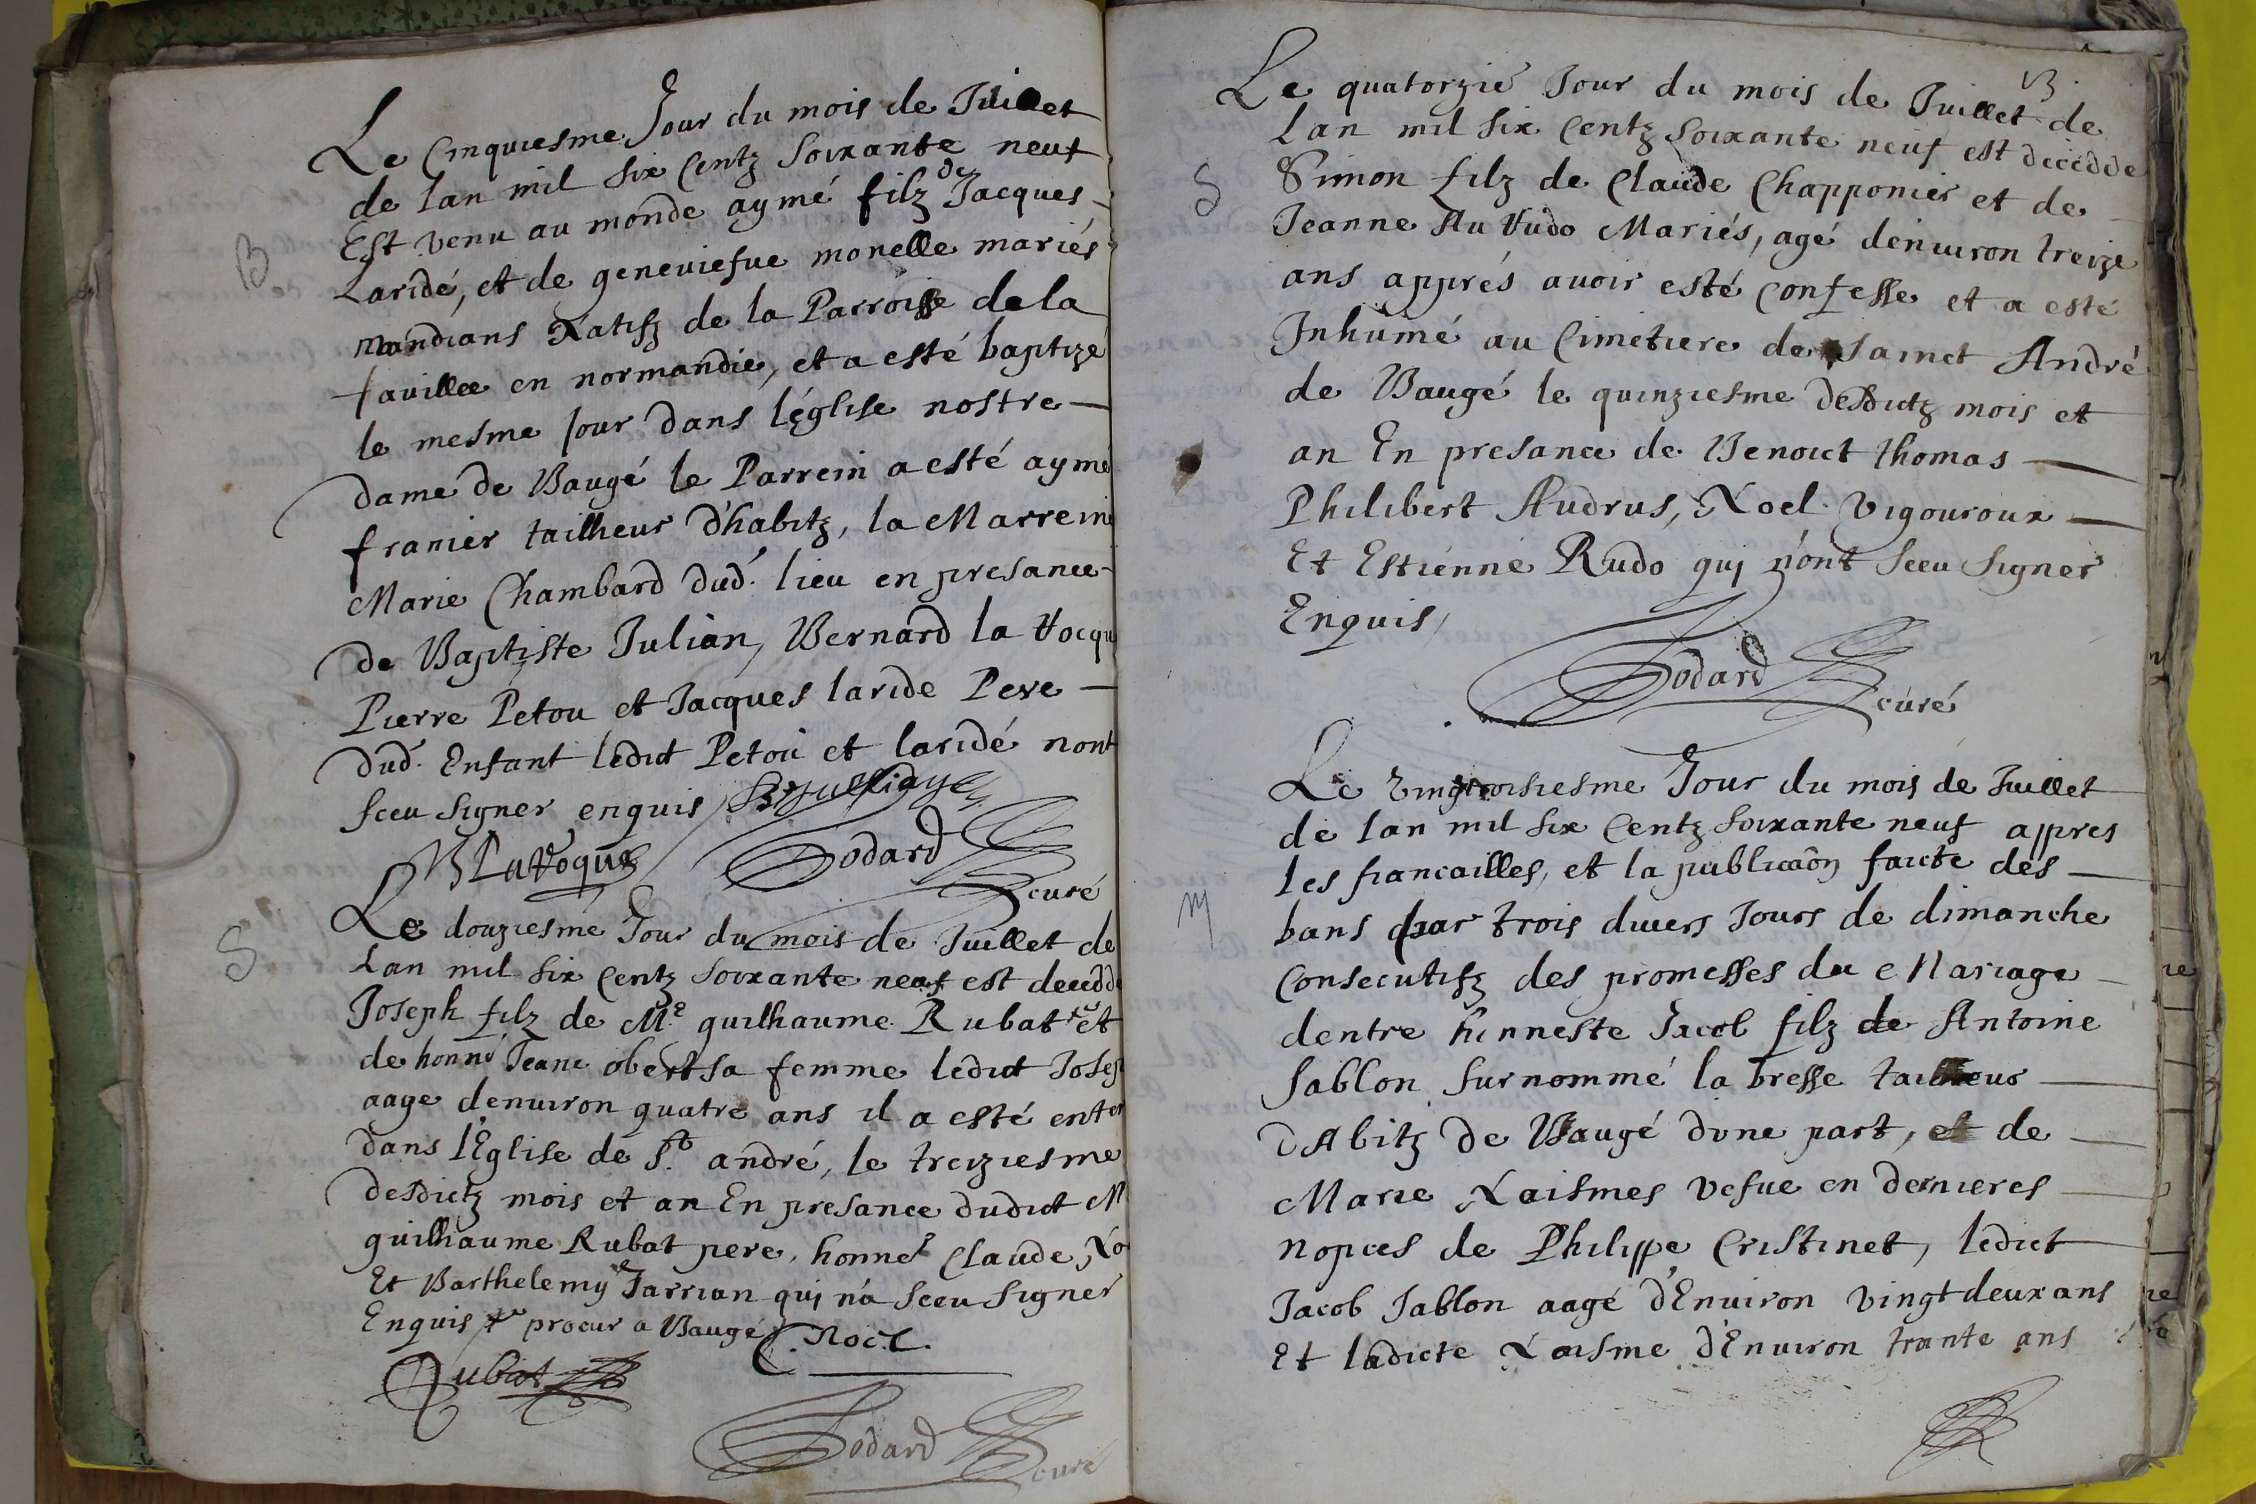 Le Cinquiesme Jour du mois de Juillet
de lan mil six Centz soixante neuf
Est venu au monde aymé filz de Jacques
B
Laridé, et de geneviefve monelle mariés
mandians Natifz de la Parroisse de la
favillee en normandie, et a esté baptizé
le mesme Jour dans léglise nostre
dame de Baugé le Parrein a esté aymé
franier tailheur d'habitz, la Marreine
Marie Chambard dud. lieu en presance
de Baptiste Julian, Bernard la Vocqu
Pierre Petou et Jacques laride Pere
dud. Enfant ledict Petou et laridé nont
sceu signer enquis
BLaVoque Godard curé
S
Le douziesme Jour du mois de Juillet de
Lan mil six Centz soixante neuf est decedde
Joseph filz de Me guilhaume Rubat et
de honne Jeane obert sa femme ledict Josep
aage denviron quatre ans il a esté enter
dans l'Eglise de St. andré, le treiziesme
desdictz mois et an En presance dudict M
guilhaume Rubat pere, honne Claude No
Et Barthelemy Jarrian qui n'a sceu signer
Enquis procur a Baugé C. Noel.
Rubat
Godard curé
13.
Le quatorzie Jour du mois de Juillet de
Lan mil six Centz soixante neuf est decedde
S
Simon filz de Claude Chapponier et de
Jeanne Au Vudo Mariés, agé denviron treize
ans apprés avoir esté Confesse et a esté
Inhumé au Cimetiere de sainct André
de Baugé le quinziesme desdictz mois et
an En presance de Benoict thomas
Philibert Audrus, Noel Vigouroux
Et Estienne Rudo qui n'ont sceu signer
Enquis,
Godard curé
Le vingtroisiesme Jour du mois de Juillet
de lan mil six Centz soixante neuf appres
les fiancailles, et la publicaôn faicte des
M
bans par trois divers Jours de dimanche
Consecutifz des promesses du Mariage
dentre hinneste Jacob filz de Antoine
Jablon surnommé la bresse tailheur
dAbitz de Baugé dune part, et de
Marie Naismes vefue en dernieres
nopces de Philippe Cristinet, ledict
Jacob Jablon aagé d'Environ vingt deux ans
Et ladicte Naisme d'Environ trante ans